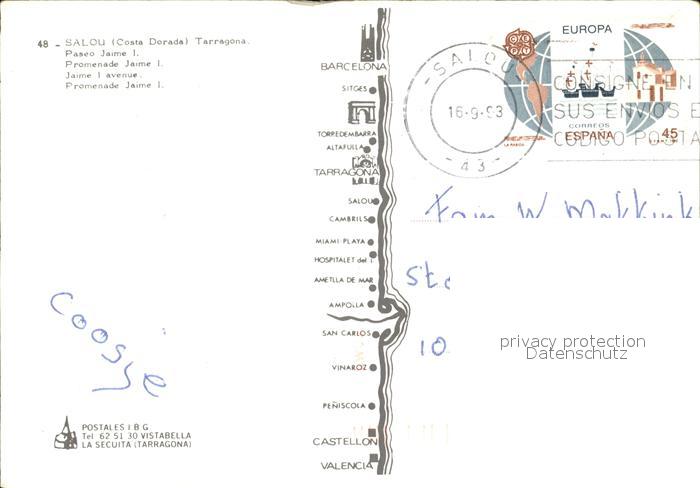 48 - SALOU (Costa Dorada) Tarragona.
Paseo Jaime I.
Promenade Jaime I.
Jaime I avenue.
Promenade Jaime I.
BARCELONA
SITGES
TORREDEMBARRA
ALTAFULLA
TARRAGONA
SALOU
CAMBRILS
MIAMI-PLAYA
HOSPITALET del I.
AMETLLA DE MAR
AMPOLLA
SAN CARLOS
VINAROZ
PEÑISCOLA
CASTELLON
VALENCIA
CEPT
EUROPA
CORREOS
ESPAÑA
45
- SALOU -
16-9-93
- 43 -
CONSIGNE EN
SUS ENVIOS E
CODIGO POSTA
Fam W. Makkink
10
privacy protection
Datenschutz
POSTALES I B G
Tel 62 51 30 VISTABELLA
LA SECUITA (TARRAGONA)